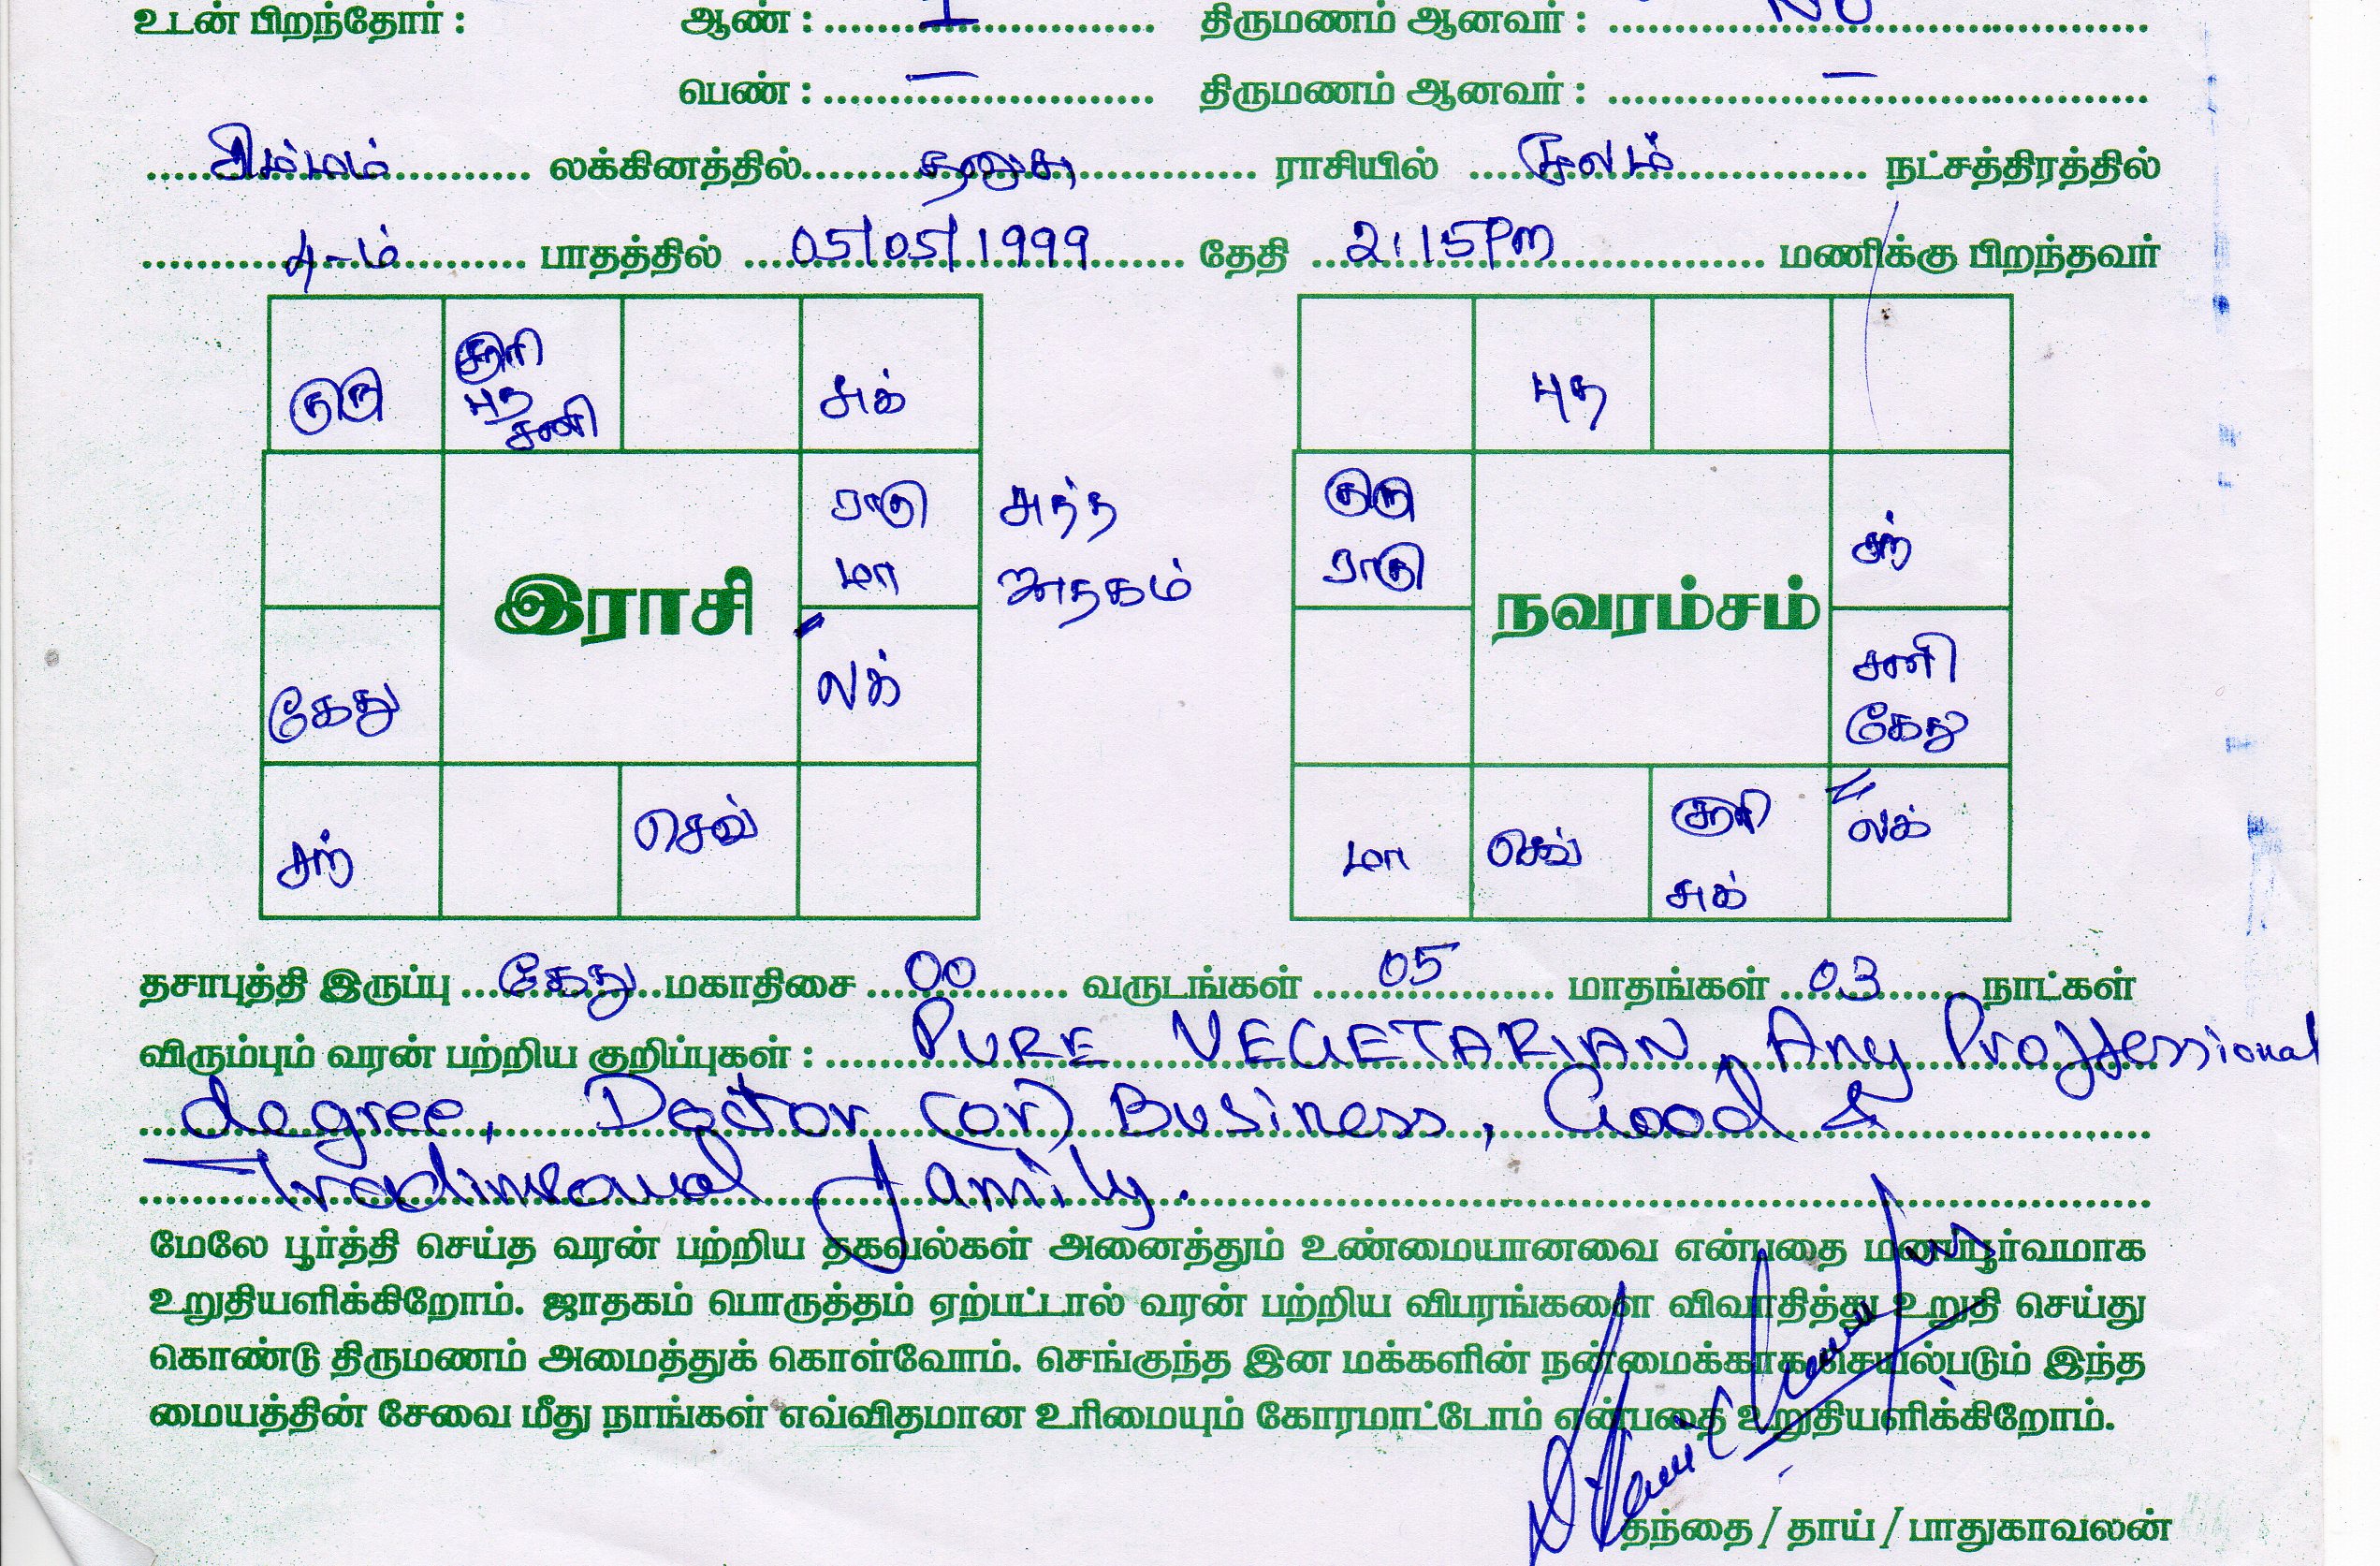 உடன் பிறந்தோர் : ஆண் : 1 திருமணம் ஆனவர் : No
பெண் : — திருமணம் ஆனவர் : —
சிம்மம் லக்கினத்தில் தனுசு ராசியில் மூலம் நட்சத்திரத்தில்
4-ம் பாதத்தில் 05/05/1999 தேதி 2:15Pm மணிக்கு பிறந்தவர்
குரு சூரி புத சனி சுக்
ராகு மா
சுத்த ஜாதகம்
இராசி
கேது லக்
சந் செவ்
புத
குரு ராகு சந்
நவரம்சம்
சனி கேது
மா செவ் சூரி சுக் லக்
தசாபுத்தி இருப்பு கேது மகாதிசை 00 வருடங்கள் 05 மாதங்கள் 03 நாட்கள்
விரும்பும் வரன் பற்றிய குறிப்புகள் : PURE VEGETARIAN, Any Proffessional
degree, Doctor (or) Business, Good &
family.
மேலே பூர்த்தி செய்த வரன் பற்றிய தகவல்கள் அனைத்தும் உண்மையானவை என்பதை மனபூர்வமாக
உறுதியளிக்கிறோம். ஜாதகம் பொருத்தம் ஏற்பட்டால் வரன் பற்றிய விபரங்களை விவாதித்து உறுதி செய்து
கொண்டு திருமணம் அமைத்துக் கொள்வோம். செங்குந்த இன மக்களின் நன்மைக்காக செயல்படும் இந்த
மையத்தின் சேவை மீது நாங்கள் எவ்விதமான உரிமையும் கோரமாட்டோம் என்பதை உறுதியளிக்கிறோம்.
தந்தை / தாய் / பாதுகாவலன்